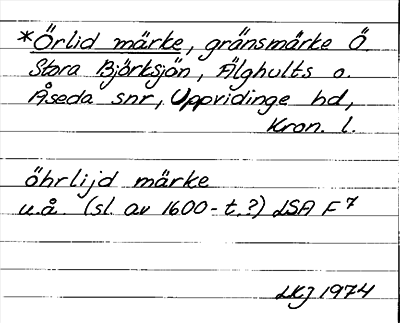 *Örlid märke, gränsmärke Ö.
Stora Björksjön, Älghults o.
Åseda snr, Uppvidinge hd,
Kron. l.
öhrlijd märke
u.å. (sl. av 1600-t.?) LSA F 7
LKJ 1974